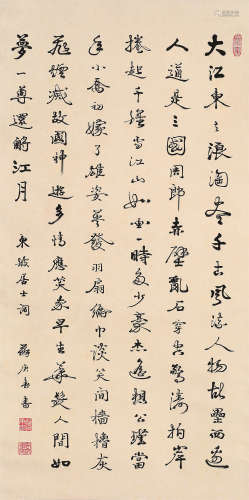 大江東去浪淘盡千古風流人物故壘西邊
人道是三國周郎赤壁亂石穿空驚濤拍岸
捲起千堆雪江山如畫一時多少豪傑遙想公瑾當
年小喬初嫁了雄姿英發羽扇綸巾談笑間檣櫓灰
飛煙滅故國神遊多情應笑我早生華髮人間如
夢一尊還酹江月
東坡居士詞
蘇庚春書